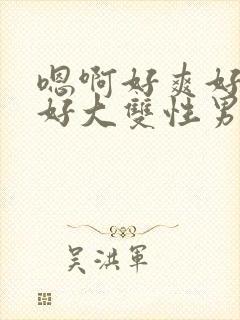 嗯啊好爽好
好大雙性男
吴洪軍